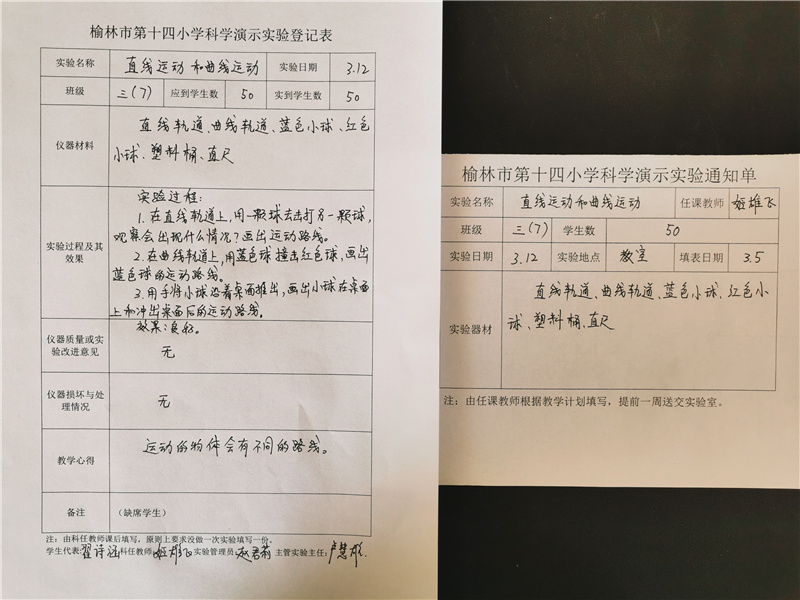 榆林市第十四小学科学演示实验登记表
实验名称 直线运动和曲线运动 实验日期 3.12
班级 三(7) 应到学生数 50 实到学生数 50
仪器材料 直线轨道、曲线轨道、蓝色小球、红色
小球、塑料桶、直尺
实验过程及其
效果
实验过程:
1.在直线轨道上,用一颗球去击打另一颗球,
观察会出现什么情况?画出运动路线。
2.在曲线轨道上,用蓝色球撞击红色球,画出
蓝色球的运动路线。
3.用手将小球沿着桌面推出,画出小球在桌面
上和冲出桌面后的运动路线。
效果:良好。
仪器质量或实
验改进意见
无
仪器损坏与处
理情况
无
教学心得 运动的物体会有不同的路线。
备注 (缺席学生)
注:由科任教师课后填写,原则上要求没做一次实验填写一份。
学生代表:翟诗涵 科任教师:姬雄飞 实验管理员: 主管实验主任:卢慧雄
榆林市第十四小学科学演示实验通知单
实验名称 直线运动和曲线运动 任课教师 姬雄飞
班级 三(7) 学生数 50
实验日期 3.12 实验地点 教室 填表日期 3.5
实验器材 直线轨道、曲线轨道、蓝色小球、红色小
球、塑料桶、直尺
注:由任课教师根据教学计划填写,提前一周送交实验室。